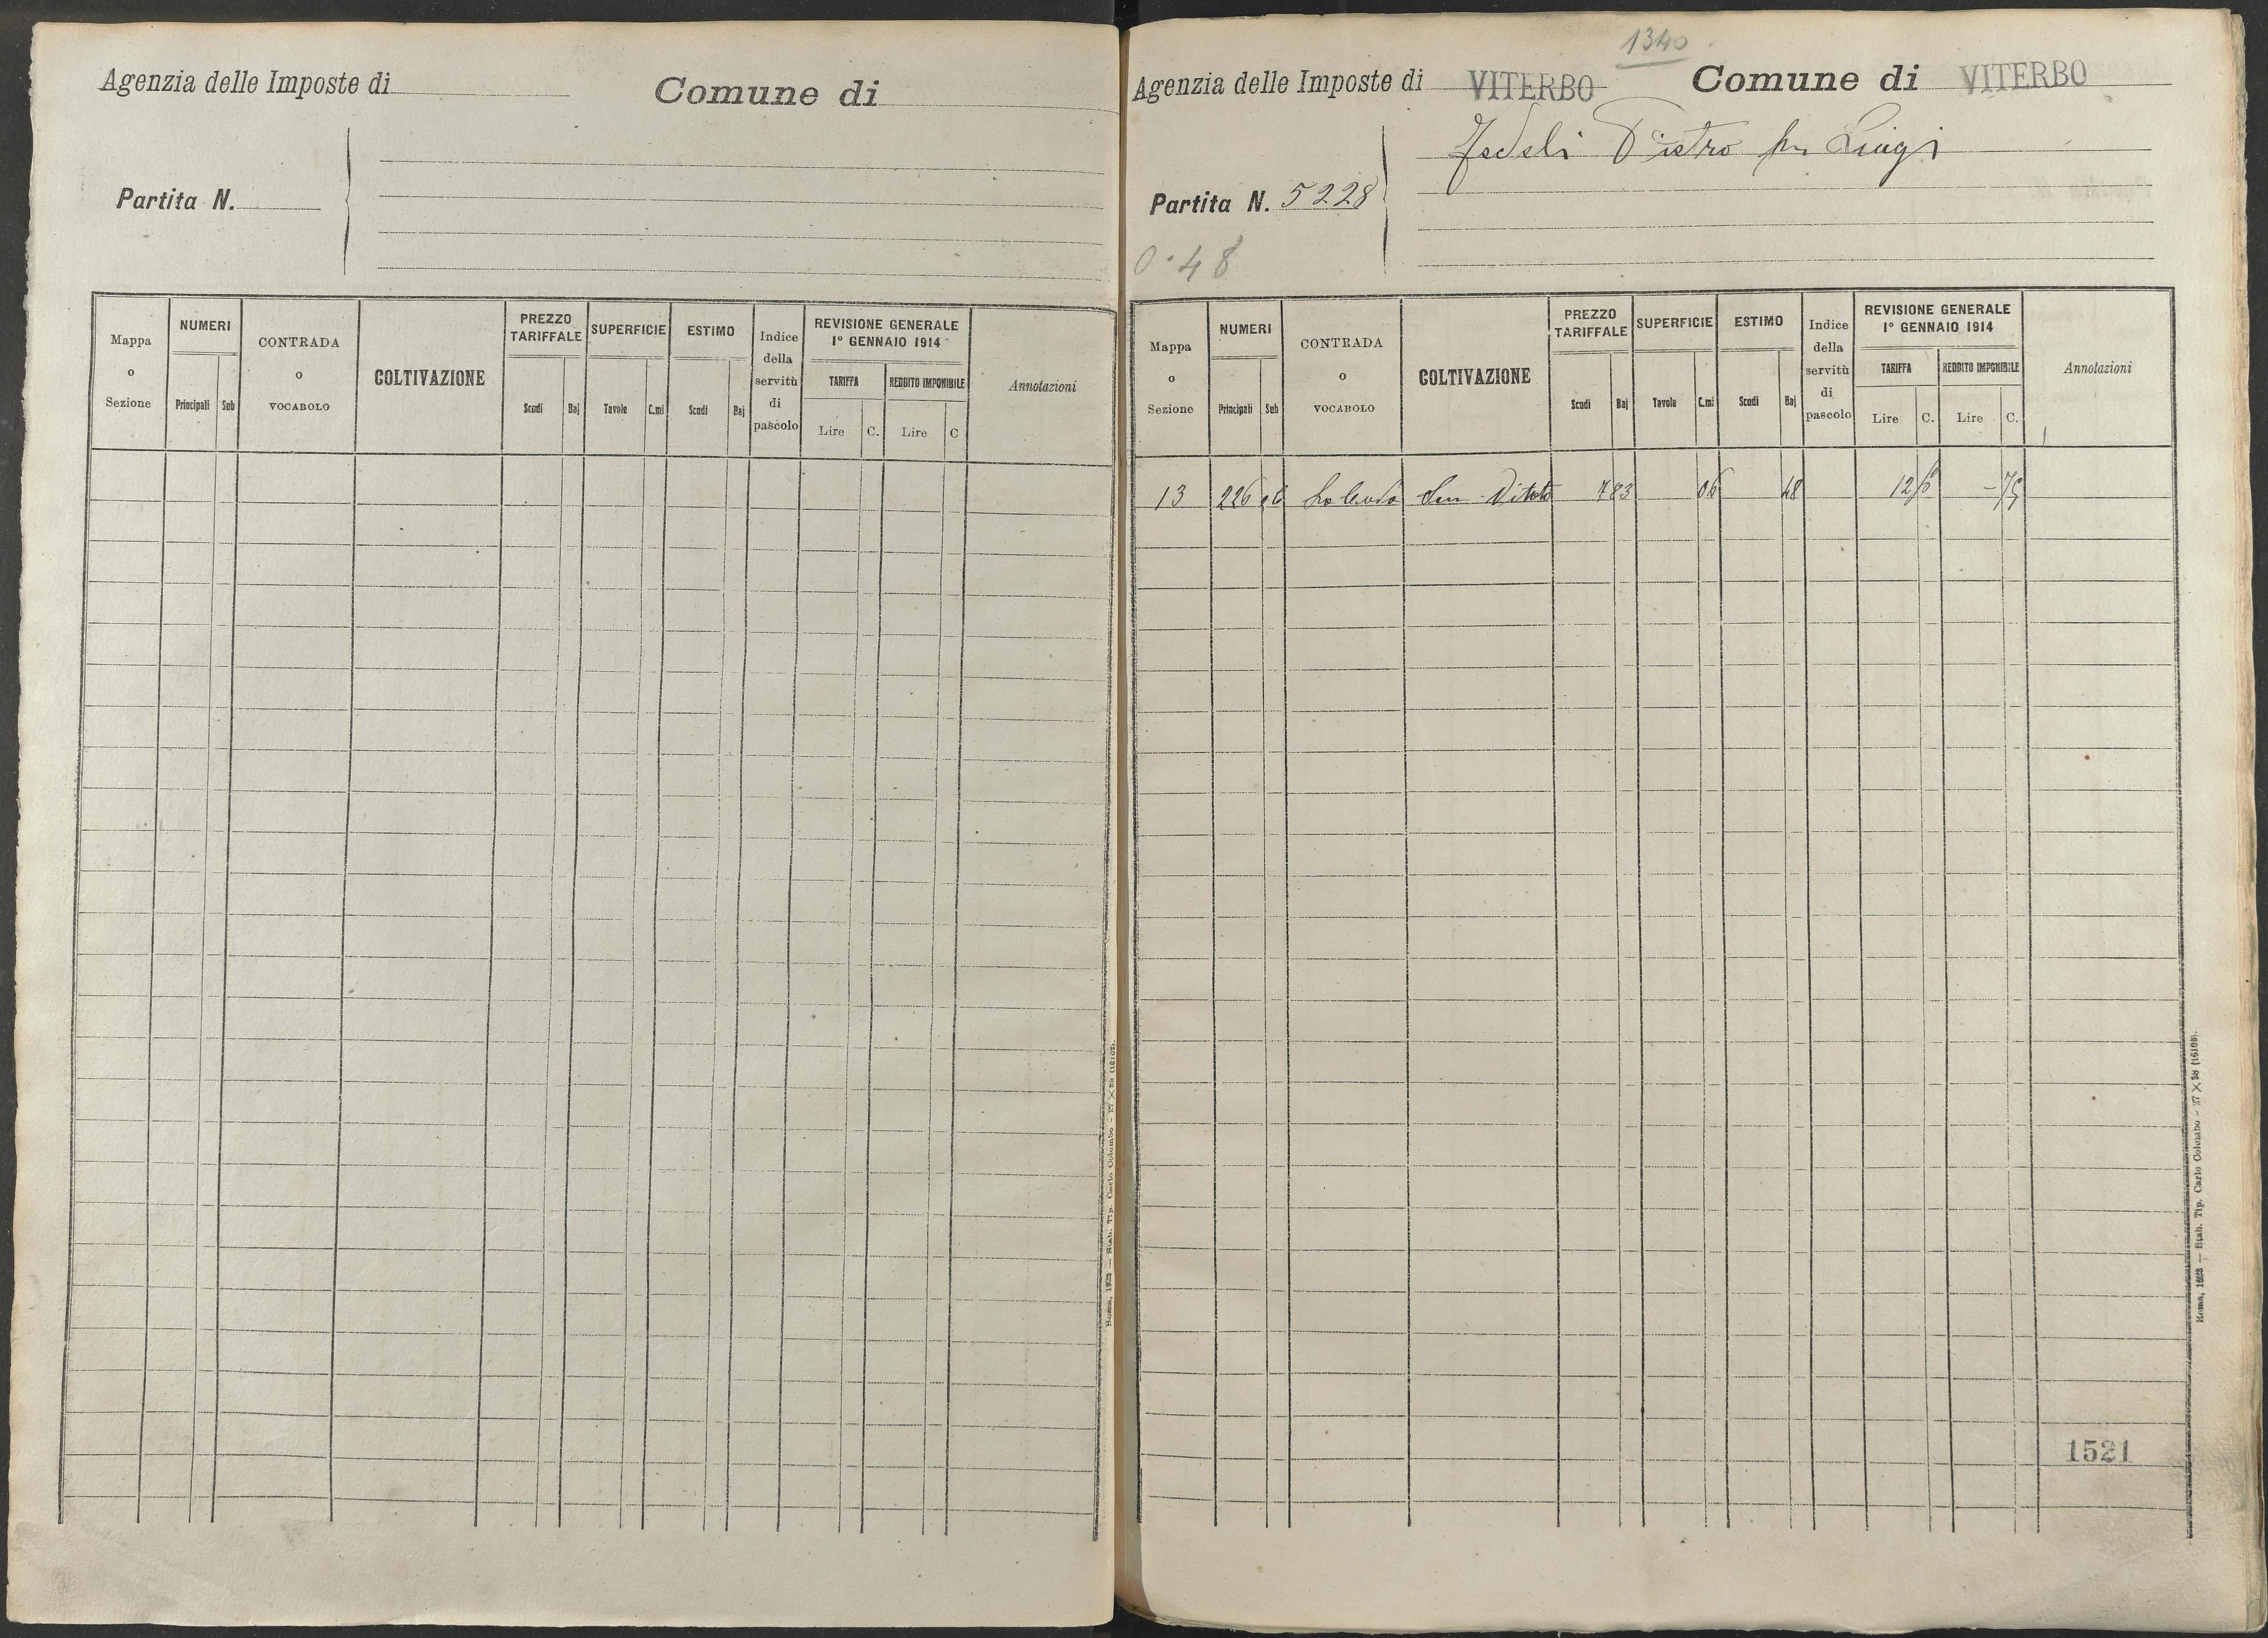 Agenzia delle Imposte di
Comune di
Partita N.
Mappa o Sezione
NUMERI
Principali Sub
CONTRADA o VOCABOLO
COLTIVAZIONE
PREZZO TARIFFALE
Scudi Baj
SUPERFICIE
Tavole C.mi
ESTIMO
Scudi Baj
Indice della servitù di pascolo
REVISIONE GENERALE 1° GENNAIO 1914
TARIFFA
Lire C.
REDDITO IMPONIBILE
Lire C
Annotazioni
Roma, 1923 — Stab. Tip. Carlo Colombo - 27 X 38 (16108).
1340
Agenzia delle Imposte di VITERBO Comune di VITERBO
Fedeli Pietro fu Luigi
Partita N. 5228
0.48
Mappa o Sezione
NUMERI
Principali Sub
CONTRADA o VOCABOLO
COLTIVAZIONE
PREZZO TARIFFALE
Scudi Baj
SUPERFICIE
Tavole C.mi
ESTIMO
Scudi Baj
Indice della servitù di pascolo
REVISIONE GENERALE 1° GENNAIO 1914
TARIFFA
Lire C.
REDDITO IMPONIBILE
Lire C.
Annotazioni
13 226 Sem Vitato 783 06 48 12 – 75
Roma, 1923 — Stab. Tip. Carlo Colombo - 27 X 38 (16108).
1521